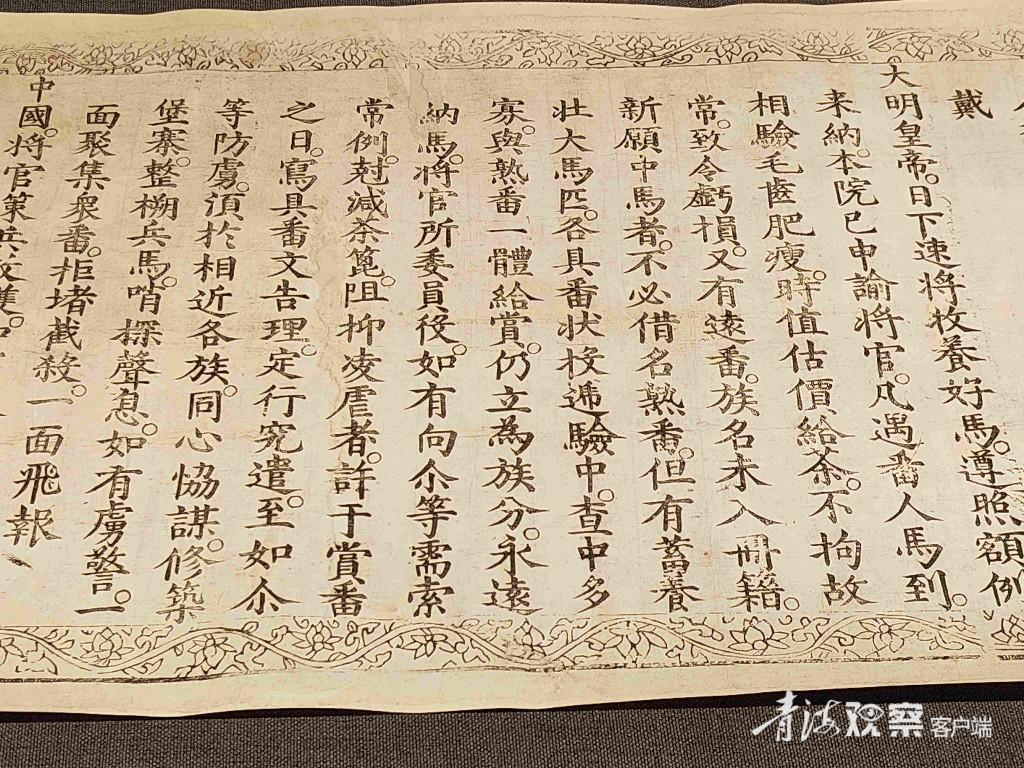 戴
大明皇帝。日下速將牧養好馬。遵照額例
来納。本院已申諭將官。凡遇番人馬到。
相驗毛齒肥瘦。時值估價給茶。不拘故
常。致令虧損。又有遠番。族名未入冊籍。
新願中馬者。不必借名熟番。但有蓄養
壯大馬匹。各具番狀投遞驗中。查中多
寡。與熟番一體給賞。仍立為族分。永遠
納馬。將官所委員役。如有向尒等需索
常例。尅減茶篦。阻抑凌虐者。許于賞番
之日。寫具番文告理。定行究遣。至如尒
等防虜。須於相近各族。同心協謀。修築
堡寨。整搠兵馬。哨探聲息。如有虜警。一
面聚集衆番。拒堵截殺。一面飛報
中國。將官策兵
青海观察客户端